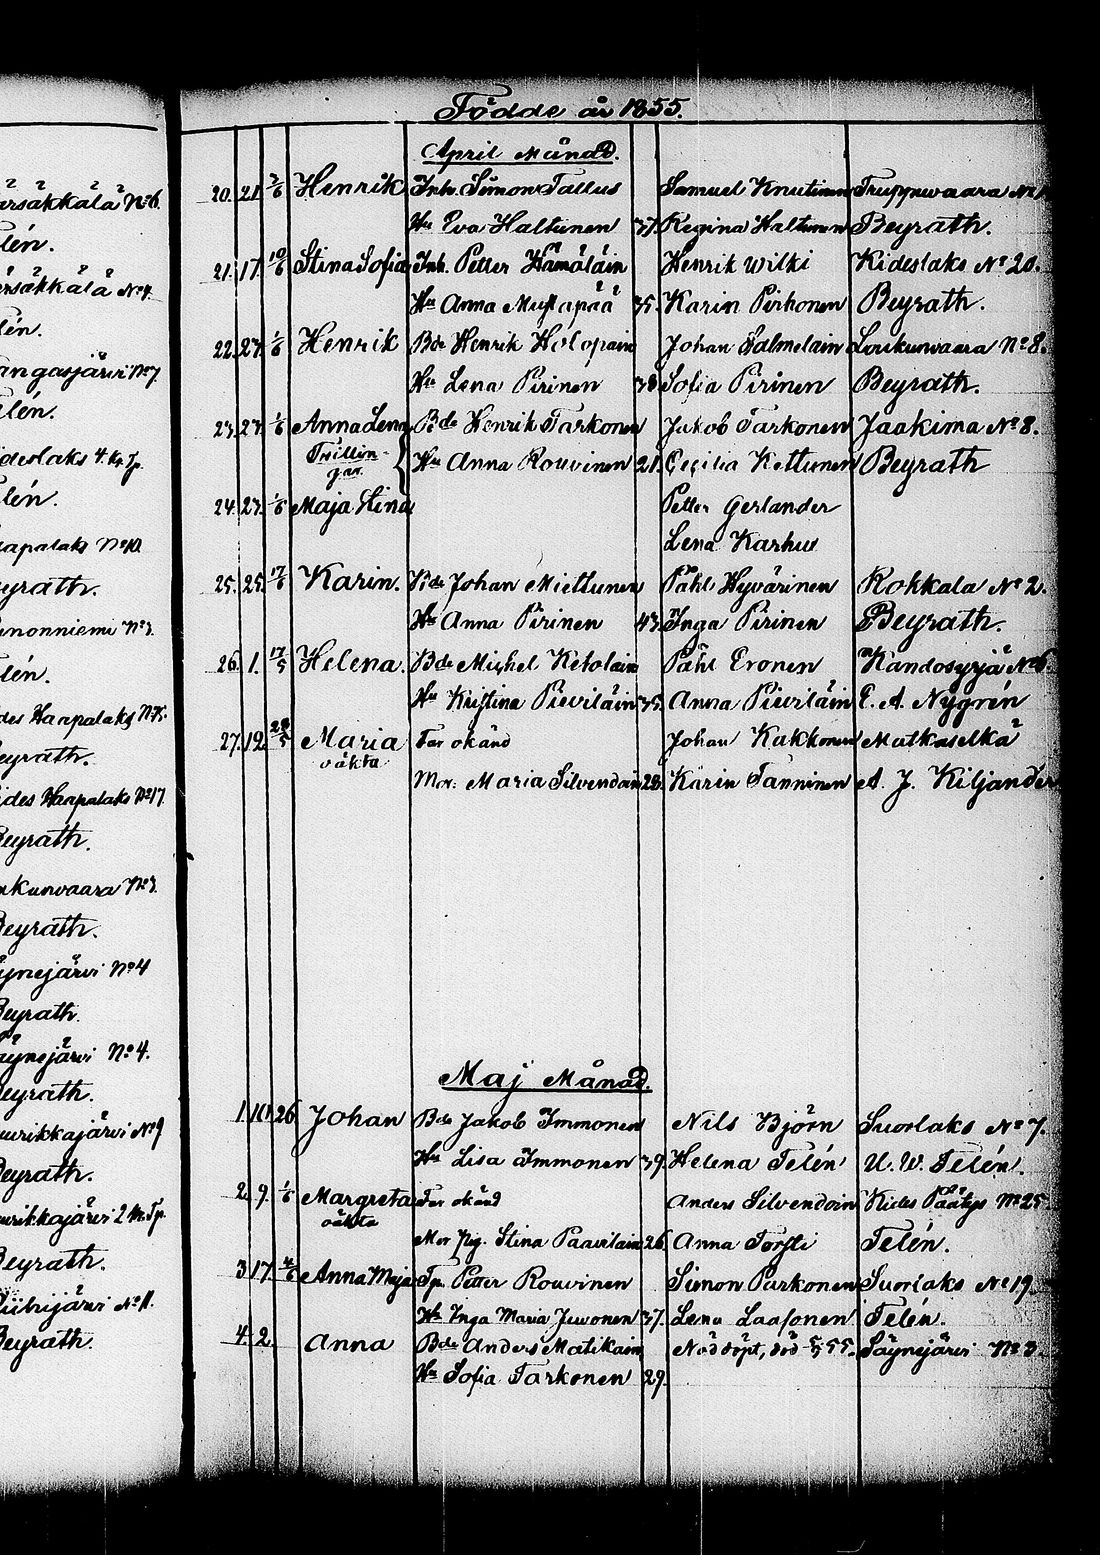 ärsäkkälä No 6.
Telén.
ersäkkälä No 4.
lén.
angasjärvi No 7.
elén.
ideslaks 4. Kr. Tp.
lén.
aapalaks No 10.
eyrath.
nonniemi No 3.
lén.
des Haapalaks No
eyrath.
ides Haapalaks No 17.
Beyrath.
nkunvaara No 3.
Beyrath.
äynejärvi No 4
Beyrath.
äynejärvi No 4.
Beyrath.
uurikkajärvi No 9
Beyrath.
uurikkajärvi 2 Kr. Tp.
Beyrath.
No 11.
Beyrath.
Födde år 1855.
April Månad.
20. 21. 2/6 Henrik Inh. Simon Tallus Samuel Knutinen Truppuvaara No
Hu Eva Haltunen 37. Regina Haltunen Beyrath.
21. 17. 10/6 Stina Sofia Inh. Petter Hämäläin Henrik Wilki Kideslaks No 20.
Hu Anna Mustapää 35. Karin Pirhonen Beyrath.
22. 27. 1/6 Henrik Bde Henrik Holopain Johan Salmelain Loukunvaara No 8.
Hu Lena Pirinen 38 Sofia Pirinen Beyrath.
23. 27. 1/6 Anna Lena Bde Henrik Tarkonen Jakob Tarkonen Jaakima No 8.
Tvillin-
gar. Hu Anna Rouvinen 21. Cecilia Kettunen Beyrath
24. 27. 1/6 Maja Stina Petter Gerlander
Lena Karhu
25. 25. 17/6 Karin. Bde Johan Miettunen Påhl Hyvärinen Kokkala No 2.
Hu Anna Pirinen 43. Inga Pirinen Beyrath.
26. 1. 17/5 Helena. Bde Michel Ketolain Påhl Eronen Kandosyrjä No 6.
Hu Kristina Pieviläin 35. Anna Pieviläin E. A. Nygrén
27. 12. 28/5 Maria Far okänd Johan Kakkonen Matkaselkä
oäkta
Mor: Maria Silvendoin 28. Karin Tanninen A. J. Kiljander
Maj Månad.
1. 10. 26 Johan Bde Jakob Immonen Nils Björn Suorlaks No 7.
Hu Lisa Immonen 39. Helena Telén U. W. Telén.
2. 9. 1/6 Margreta Far okänd Anders Silvendoin Kides Päätys No 25
oäkta
Mor Pig. Stina Paavilain 26. Anna Torsti Telén.
3 17. 4/6 Anna Maja Tp. Petter Rouvinen Simon Parkonen Suorlaks No 19.
Hu Inga Maria Juvonen 37. Lena Laasonen Telén.
4. 2. Anna Bde Anders Matikain Nöddöpt, död 5/5 55. Säynejärvi No 3.
Hu Sofia Tarkonen 29.